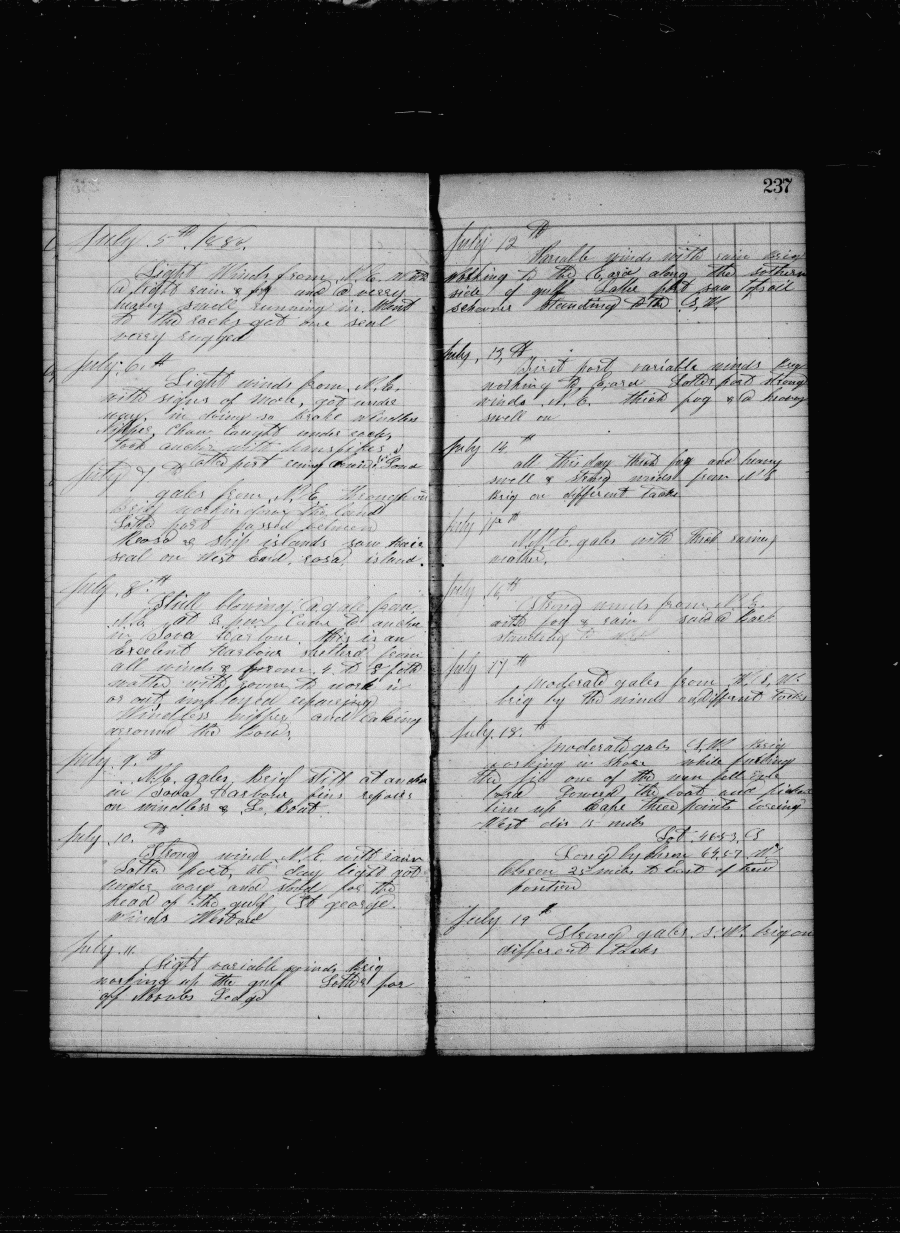 July 5th 1880.
Light Winds from N.E. with
a light rain & fog and a verry
heavey swell running in. Went
to the rocks got one seal
verry rugged
July 6.th
Light winds from N.E.
with signs of more, got under
way, in doing so broke windlass
nipper, Chain caught under rocks
took anchor with
July 7th
gales from N.E. through
brig working the land
Latter part passed between
& ship islands saw
seal on West End island.
July 8.th
Still blowing a gale from
N.E. at P.M. Came to anchor
in harbour. this is an
Excelent harbour shelterd from
all winds & from 4 to 8 fath
watter with room to work in
or out imployed repairing
Windless nipper and
around the bows.
July 9.th
N.E. gales, brig Still at anchor
in Harbour repairs
on windless & Boat
July 10.th
Strong wind N.E with rain
Latter Part, at day light got
under way and stood for the
head of the gulf St george.
Winds
July 11.
Light variable winds brig
working up the gulf Latter
off Ledge
237
July 12th
Variable winds with rain brig
working to the along the sothern
side of gulf Latter part saw topsail
schooner standing to the S,W.
July, 13,th
First part, variable winds brig
working to Latter part strong
winds N. E. thick fog & a heavey
swell on
July 14th
all this day thick fog and heavy
swell & strong winds from N'E
brig on different tacks
July 15th
N.N.E. gales with thick rainey
wather.
July 16th
Strong winds from N.E.
with fog & rain saw a bark
standing to
July 17th
moderate gales from
brig by the wind on different tacks
July 18.th
moderate gales S,W. brig
working in shore while furling
the jib one of the men fell over
bord. Lowerd the boat and picked
him up Cape three points bearing
West dis 15 miles
Lat 46.53, S
Long by chron 64.57. W.
Chron 25 miles to East of trew
position
July 19th
Strong gales S.W. brig on
different tacks